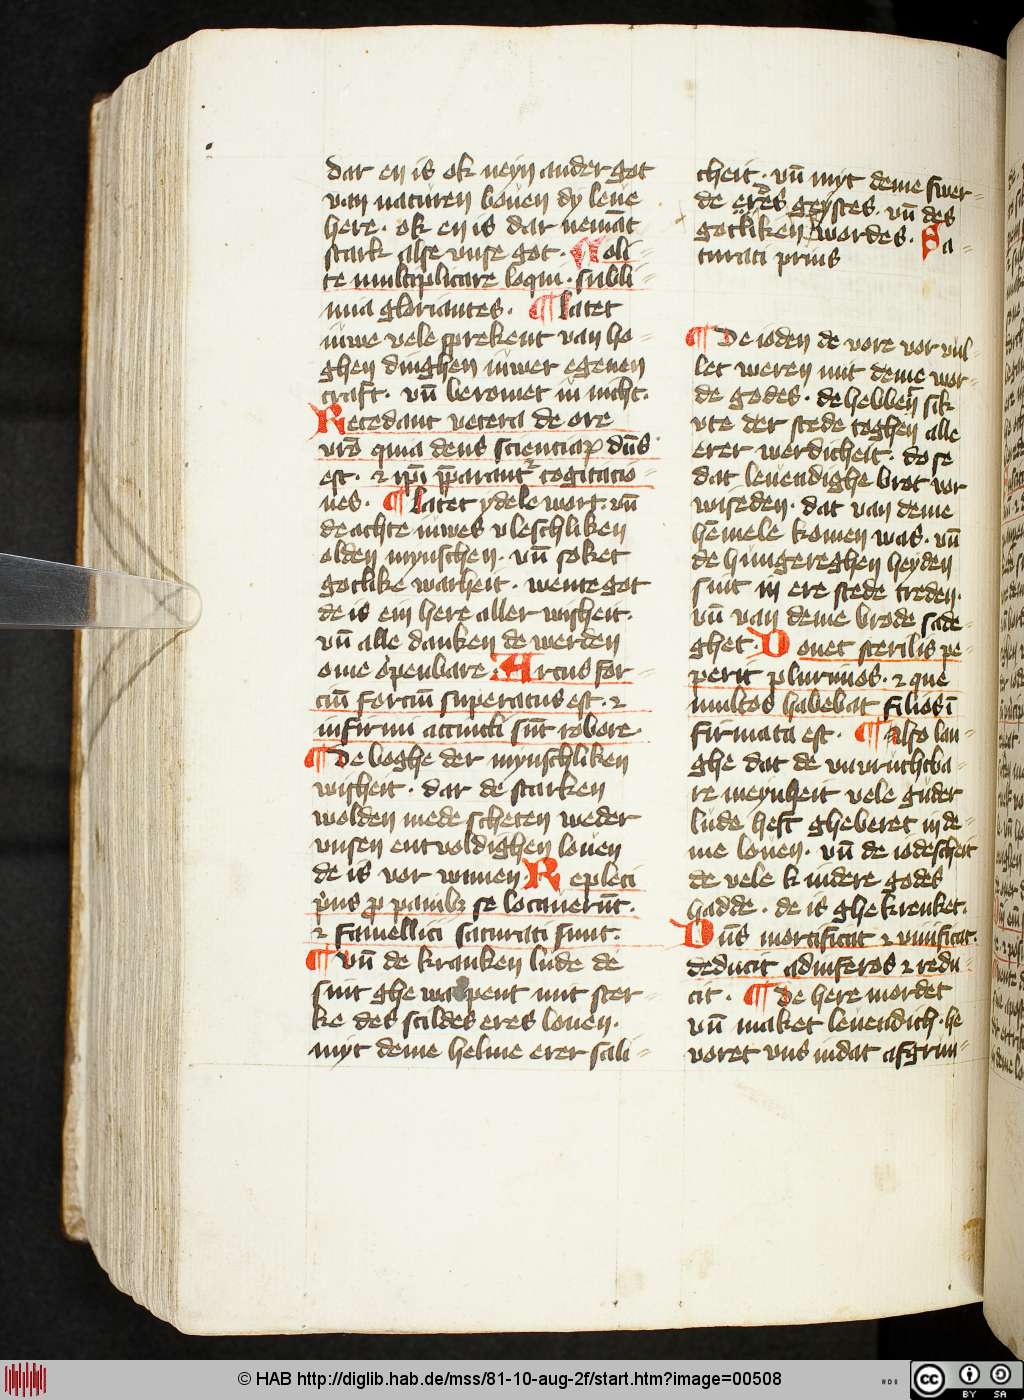 dar en is ok neyn ander got
van naturen bouen dy leue
here · ok en is dar nemāt
stark alse vnse got · Noli
te multiplicare loqui · subli
mia gloriantes · ¶ Latet
iuwe vele sprekent van ho
ghen dinghen iuwer egenen
craft · vn̄ beromet iu nicht ·
Recedant vetera de ore
vr̄o quia deus scienciaꝝ dn̄s
est · ⁊ ip̄i p̄parant᷑ cogitacio
nes · ¶ Latet ydele wort · vn̄
de achte iuwes vleschliken
olden mynschen · vn̄ soket
gotlike warheit · wente got
de is ein here aller wisheit ·
vn̄ alle danken de werden
eme openbare · Arcus for
ciū forciū superatus est · ⁊
infirmi accincti sūt robore
¶ De boghe der mynschliken
wisheit · dar de starken
wolden mede scheten weder
vnsen entvoldighen louen
de is vor wunnen · Repleti
p̄us p̱ panibꝫ se locauerūt ·
⁊ famellici saturati sunt ·
¶ vn̄ de kranken lude de
sint ghe wapent mit ster
ke des scildes eres louen ·
myt deme helme erer sali
cheit · vn̄ myt deme swer
de eres geystes · vn̄ des
gotliken wordes · Sa
turati prius
¶ De ioden de vore vor vul
let weren mit deme wor
de godes · de hebben sik
vte der stede toghen alle
erer werdicheit · do se
dat leuendighe brot vor
wiseden · dat van deme
hēmele komen was · vn̄
de hungereghen heyden
sint in ere stede treden ·
vn̄ van deme brode sade
ghet · Donet sterilis pe
perit plurimos · ⁊ que
multos habebat filios ī
firmata est · ¶ Also lan
ghe dat de vnvruchtba
re meynheit vele guder
lude heft gheberet in de
me louen · vn̄ de iodescheit
de vele kindere godes
hadde · de is ghekrenket ·
Dn̄s mortificat ⁊ viuificat ·
deducit ad inferos ⁊ redu
cit · ¶ De here mordet
vn̄ maket leuendich · he
voret vns in dat afgrun
© HAB http://diglib.hab.de/mss/81-10-aug-2f/start.htm?image=00508
cc BY SA